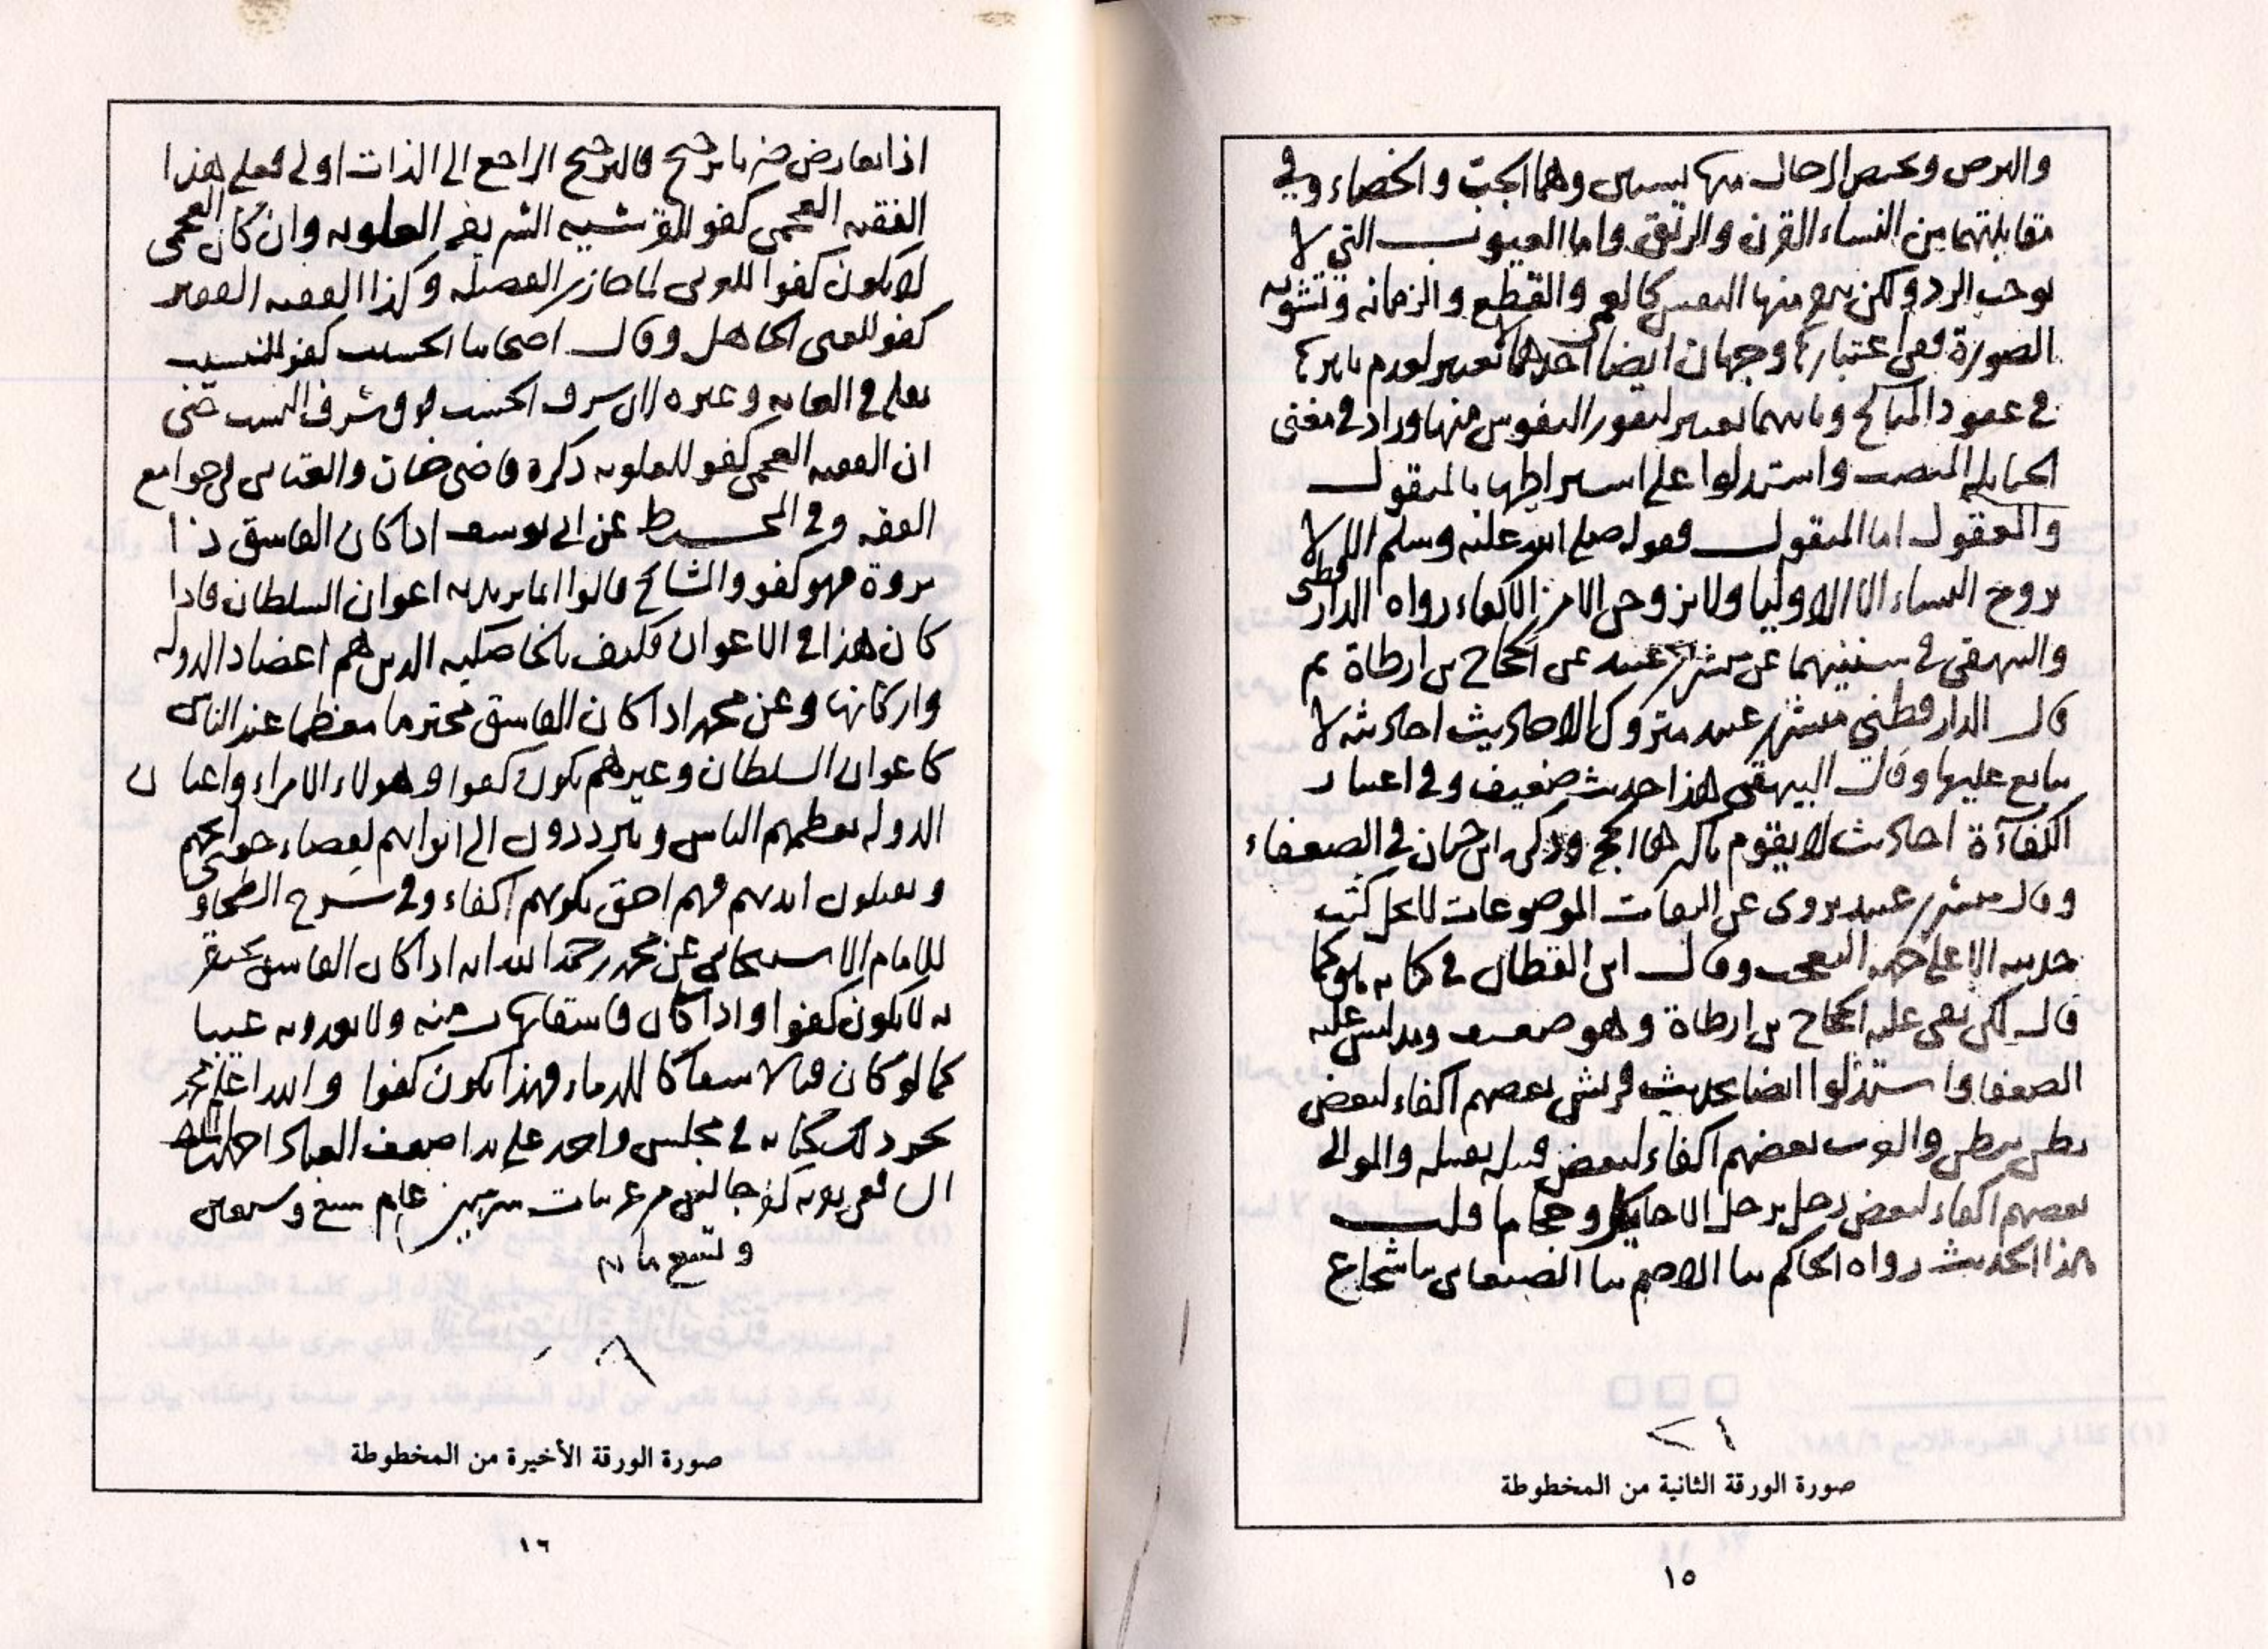 والبرص ويختص الرجال منها بشيئين وهما الجب والخصاء وفي
مقابلتهما من النساء القرن والرتق واما العيوب التي لا
توجب الرد ولكن ينفر منها النفس كالعمى والقطع والزمانه وتشويه
الصورة ففي اعتبارها وجهان ايضا احدهما لا تعتبر لعدم تاثيرها
في عقود المناكح وثانيهما تعتبر لنفور النفوس منها وزاد في مغنى
الحنابلة المنصب واستدلوا على اشتراطها بالمنقول
والمعقول اما المنقول فقوله صلى الله عليه وسلم الا لا
يزوج النساء الا الاوليا ولا يزوجن الا من الاكفاء رواه الدارقطني
والبيهقي في سننيهما عن مبشر بن عبيد عن الحجاج بن ارطاة ثم
قال الدارقطني مبشر بن عبيد متروك الاحاديث احاديثه لا
يتابع عليها وقال البيهقي هذا حديث ضعيف وفي اعتبار
الكفاءة احاديث لا يقوم باكثرها الحجج وذكره ابن حبان في الضعفاء
وقال مبشر بن عبيد يروى عن الثقات الموضوعات لا يحل كتب
حديثه الا على جهة التعجب وقال ابن القطان في كتابه هو كما
قال لكن بقى عليه الحجاج بن ارطاة وهو ضعيف ويدلس على
الضعفا واستدلوا ايضا بحديث قريش بعضهم اكفاء لبعض
بطن ببطن والعرب بعضهم اكفاء لبعض قبيلة بقبيلة والموالي
بعضهم اكفاء لبعض رجل برجل الا حايكا او حجاما قلت
هذا الحديث رواه الحاكم ثنا الاصم ثنا الصنعاني ثنا شجاع
صورة الورقة الثانية من المخطوطة
١٥
اذا تعارض ضربا ترجيح فالترجيح الراجع الى الذات اولى فعلى هذا
الفقيه العجمي كفو للقرشيه الشريفه العلويه وان كان العجمي
لا يكون كفوا للعربي لما حاز من الفضيله وكذا الفقيه الفقير
كفو للغني الجاهل وقال اصحابنا الحسيب كفو للنسيب
نقله في الغايه وغيره لان شرف الحسب فوق شرف النسب حتى
ان الفقيه العجمي كفو للعلويه ذكره قاضي خان والعتابي في جوامع
الفقه وفي المحيط عن ابي يوسف اذا كان الفاسق ذا
مروة فهو كفو والمشايخ قالوا انما يريد به اعوان السلطان فاذا
كان هذا في الاعوان فكيف بالخاصكيه الذين هم اعضاد الدوله
واركانها وعن محمد اذا كان الفاسق محترما معظما عند الناس
كاعوان السلطان وغيرهم يكون كفوا وهولاء الامراء واعيان
الدوله يعظمهم الناس ويترددون الى ابوابهم لقضاء حوائجهم
ويقبلون ايديهم فهم احق بكونهم اكفاء وفي شرح الطحاوي
للامام الاسبيجابي عن محمد رحمه الله انه اذا كان الفاسق يحتقر
به لا يكون كفوا واذا كان فاسقا يهاب منه ولا يعدونه عيبا
كما لو كان قتالا سفاكا للدماء فهذا يكون كفوا والله اعلم
في مجلس واحد على يد اضعف العباد
عام سبع وسبعين
وتسع مايه
صورة الورقة الأخيرة من المخطوطة
١٦